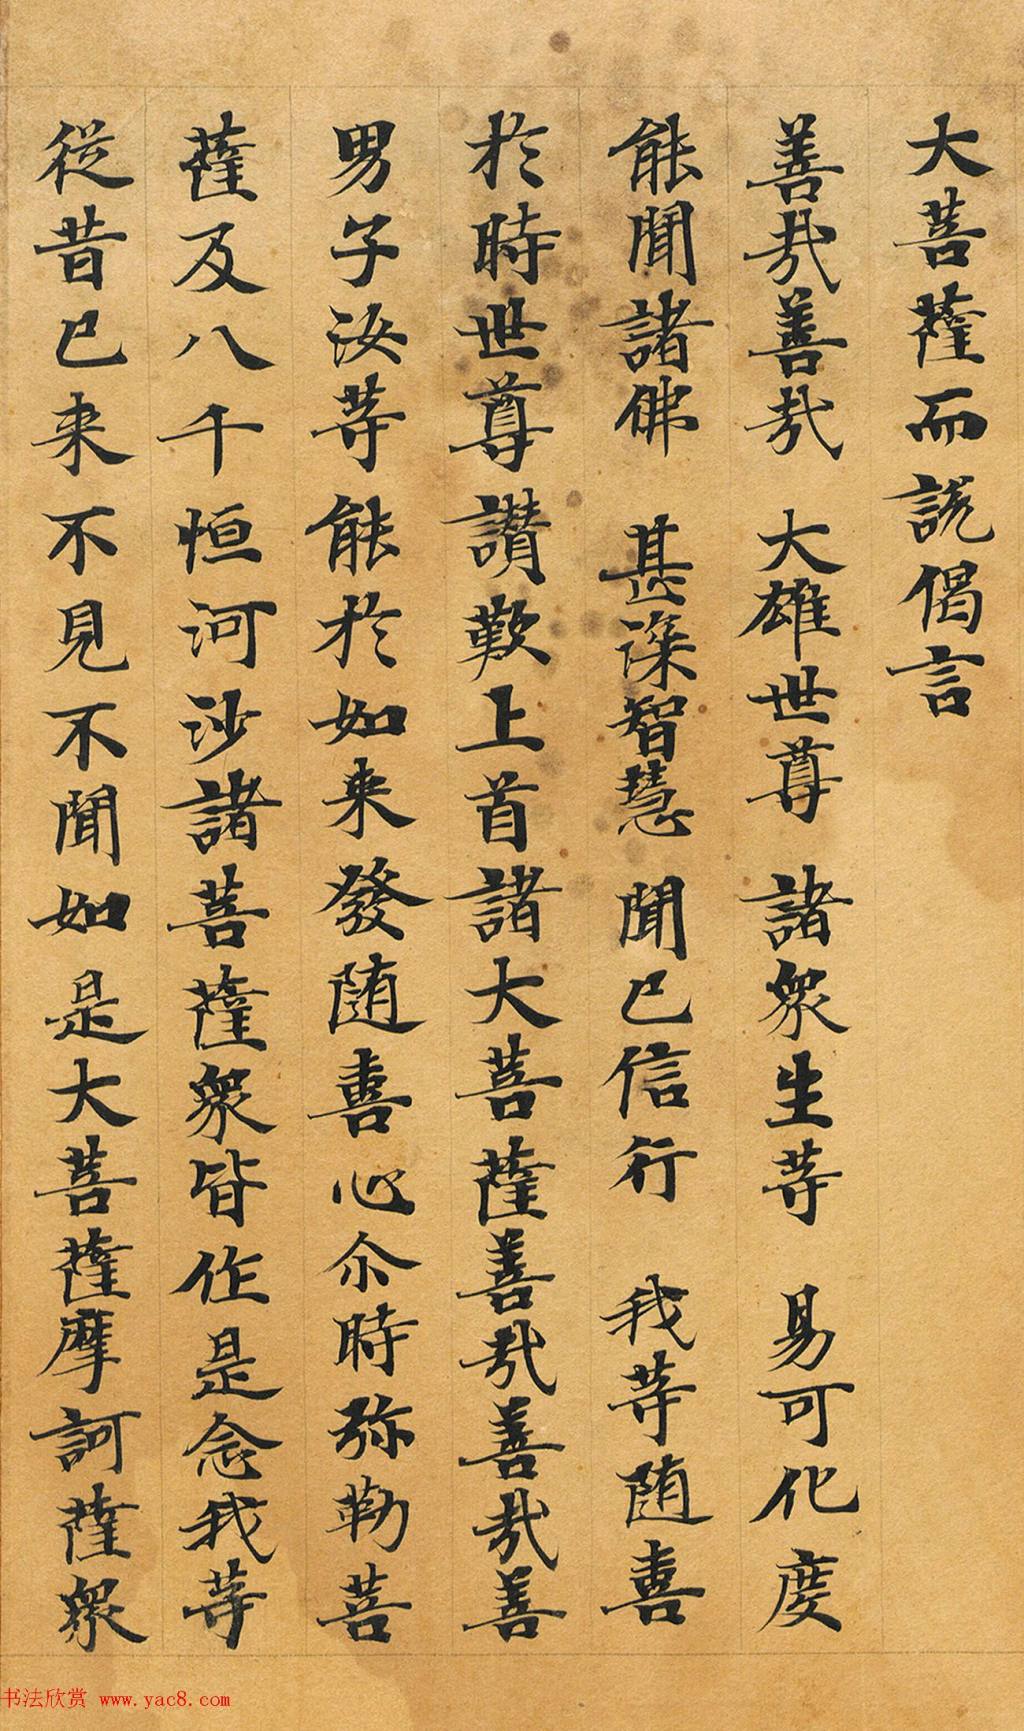 大菩薩而說偈言
善哉善哉 大雄世尊 諸衆生等 易可化度
能聞諸佛 甚深智慧 聞已信行 我等随喜
於時世尊讃歎上首諸大菩薩善哉善哉善
男子汝等能於如来發随喜心尒時弥勒菩
薩及八千恒河沙諸菩薩衆皆作是念我等
従昔已来不見不聞如是大菩薩摩訶薩衆
书法欣赏 www.yac8.com